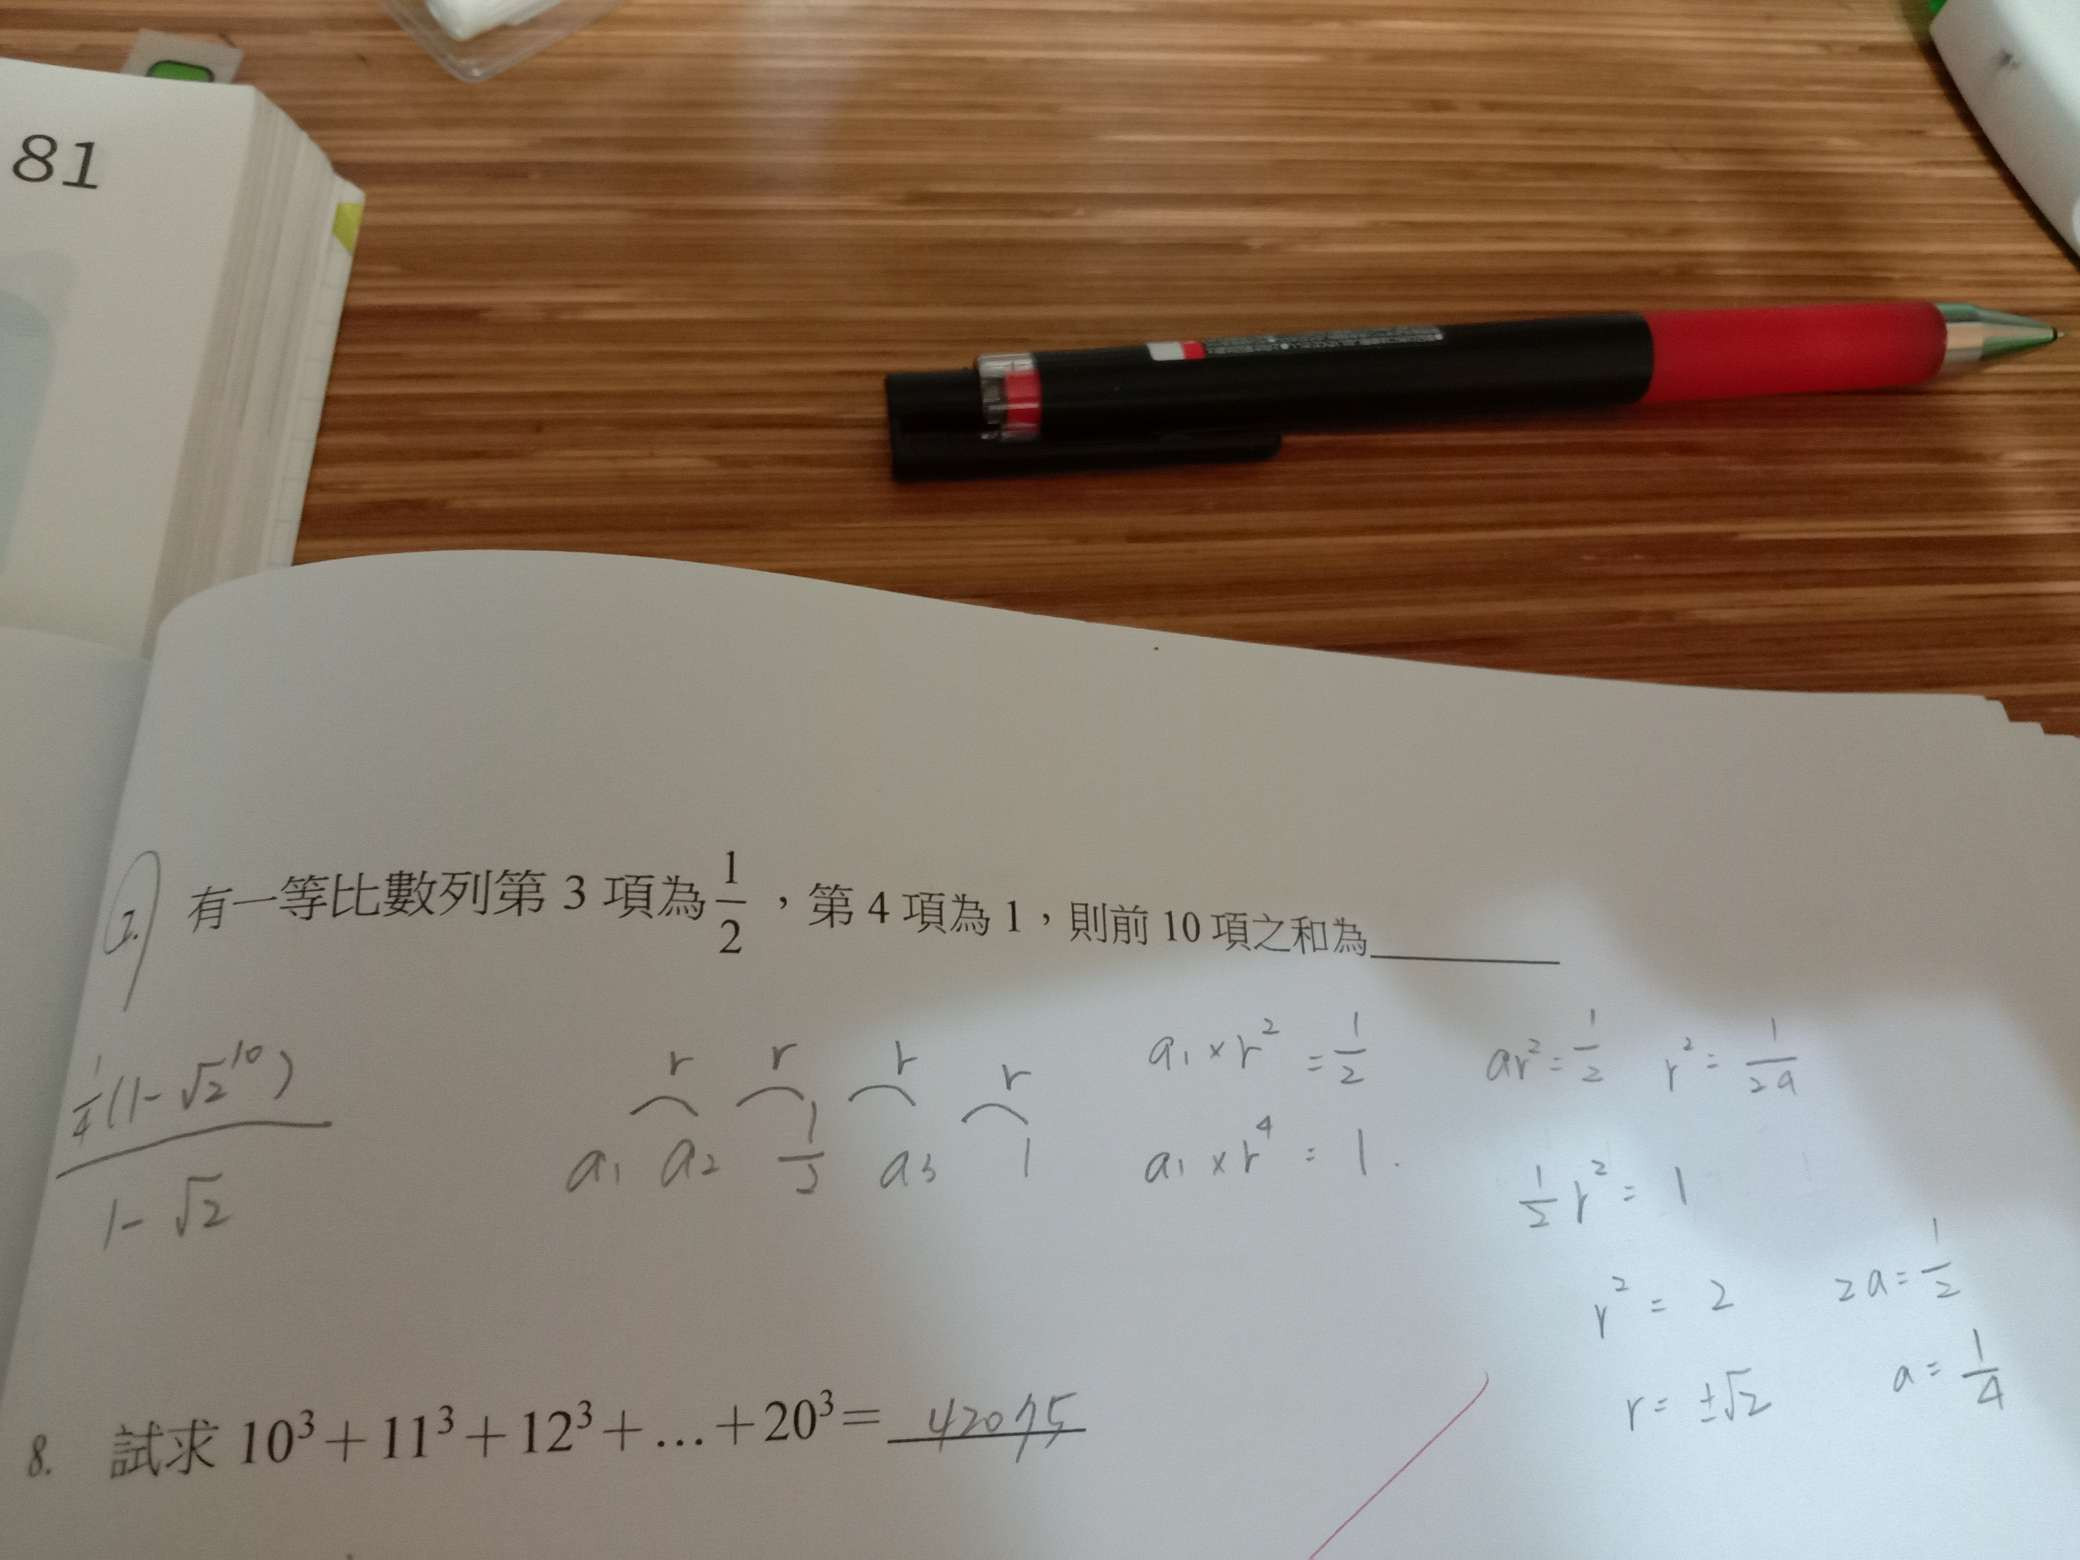 81
7. 有一等比數列第 3 項為 1/2，第 4 項為 1，則前 10 項之和為______
1/4(1-√2^10) / 1-√2
r r r r
a₁ a₂ 1/2 a₃ 1
a₁×r² = 1/2
a₁×r⁴ = 1.
ar² = 1/2 r² = 1/2a
1/2 r² = 1
r² = 2 2a = 1/2
r = ±√2 a = 1/4
8. 試求 10³+11³+12³+…+20³= 42075